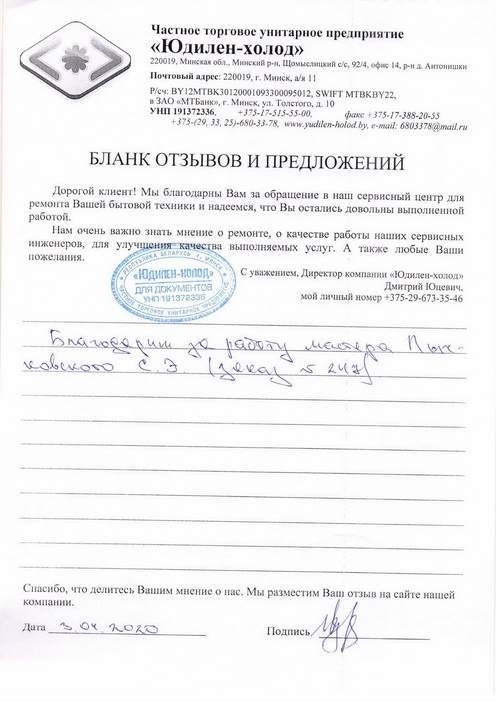 Частное торговое унитарное предприятие
«Юдилен-холод»
220019, Минская обл., Минский р-н, Щомыслицкий с/с, 92/4, офис 14, р-н д. Антонишки
Почтовый адрес: 220019, г. Минск, а/я 11
Р/сч: BY12MTBK30120001093300095012, SWIFT MTBKBY22,
в ЗАО «МТБанк», г. Минск, ул. Толстого, д. 10
УНП 191372336, +375-17-515-55-00, факс +375-17-388-20-55
+375-(29, 33, 25)-680-33-78, www.yudilen-holod.by, e-mail: 6803378@mail.ru
БЛАНК ОТЗЫВОВ И ПРЕДЛОЖЕНИЙ
Дорогой клиент! Мы благодарны Вам за обращение в наш сервисный центр для
ремонта Вашей бытовой техники и надеемся, что Вы остались довольны выполненной
работой.
Нам очень важно знать мнение о ремонте, о качестве работы наших сервисных
инженеров, для улучшения качества выполняемых услуг. А также любые Ваши
пожелания.
РЕСПУБЛИКА БЕЛАРУСЬ г. МИНСК
«ЮДИЛЕН-ХОЛОД»
ДЛЯ ДОКУМЕНТОВ
УНП 191372336
ЧАСТНОЕ ТОРГОВОЕ УНИТАРНОЕ ПРЕДПРИЯТИЕ
С уважением, Директор компании «Юдилен-холод»
Дмитрий Юцевич,
мой личный номер +375-29-673-35-46
Благодарим за работу мастера
ковского С.Э. (заказ № 247)
Спасибо, что делитесь Вашим мнением о нас. Мы разместим Ваш отзыв на сайте нашей
компании.
Дата 3.04.2020 Подпись